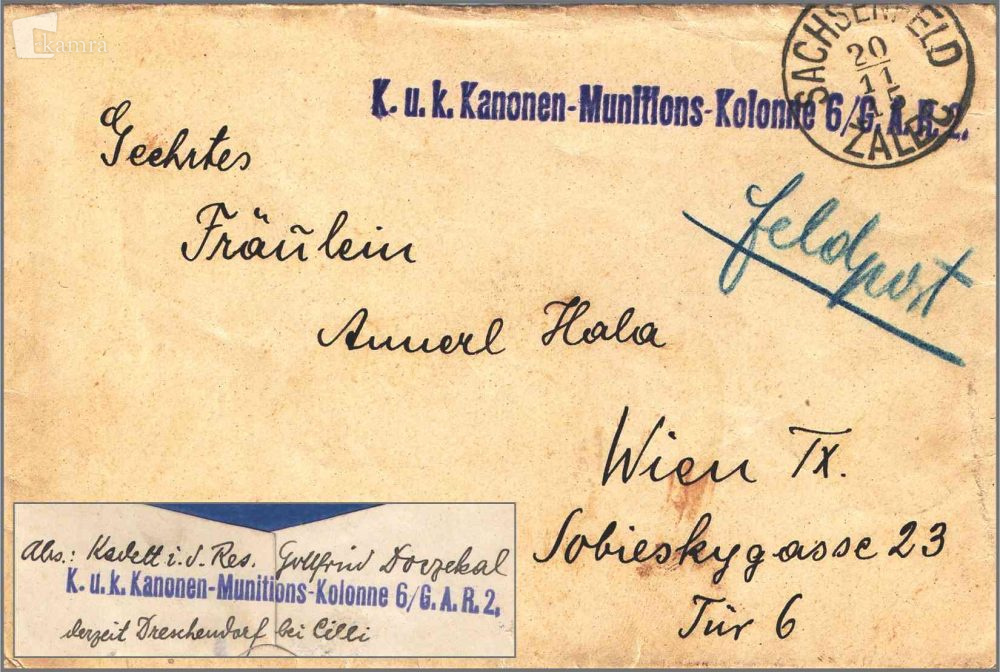 kamra
SACHSENFELD
20/1
15
ŽALEC
K. u. k. Kanonen-Munitions-Kolonne 6/G. A. R. 2.
Feldpost
Geehrtes
Fräulein
Annerl Hala
Wien IX.
Sobieskygasse 23
Tür 6
Abs.: Kadett i. d. Res. Gottfried Dovzekal
K. u. k. Kanonen-Munitions-Kolonne 6/G. A. R. 2.
derzeit Dreschendorf bei Cilli